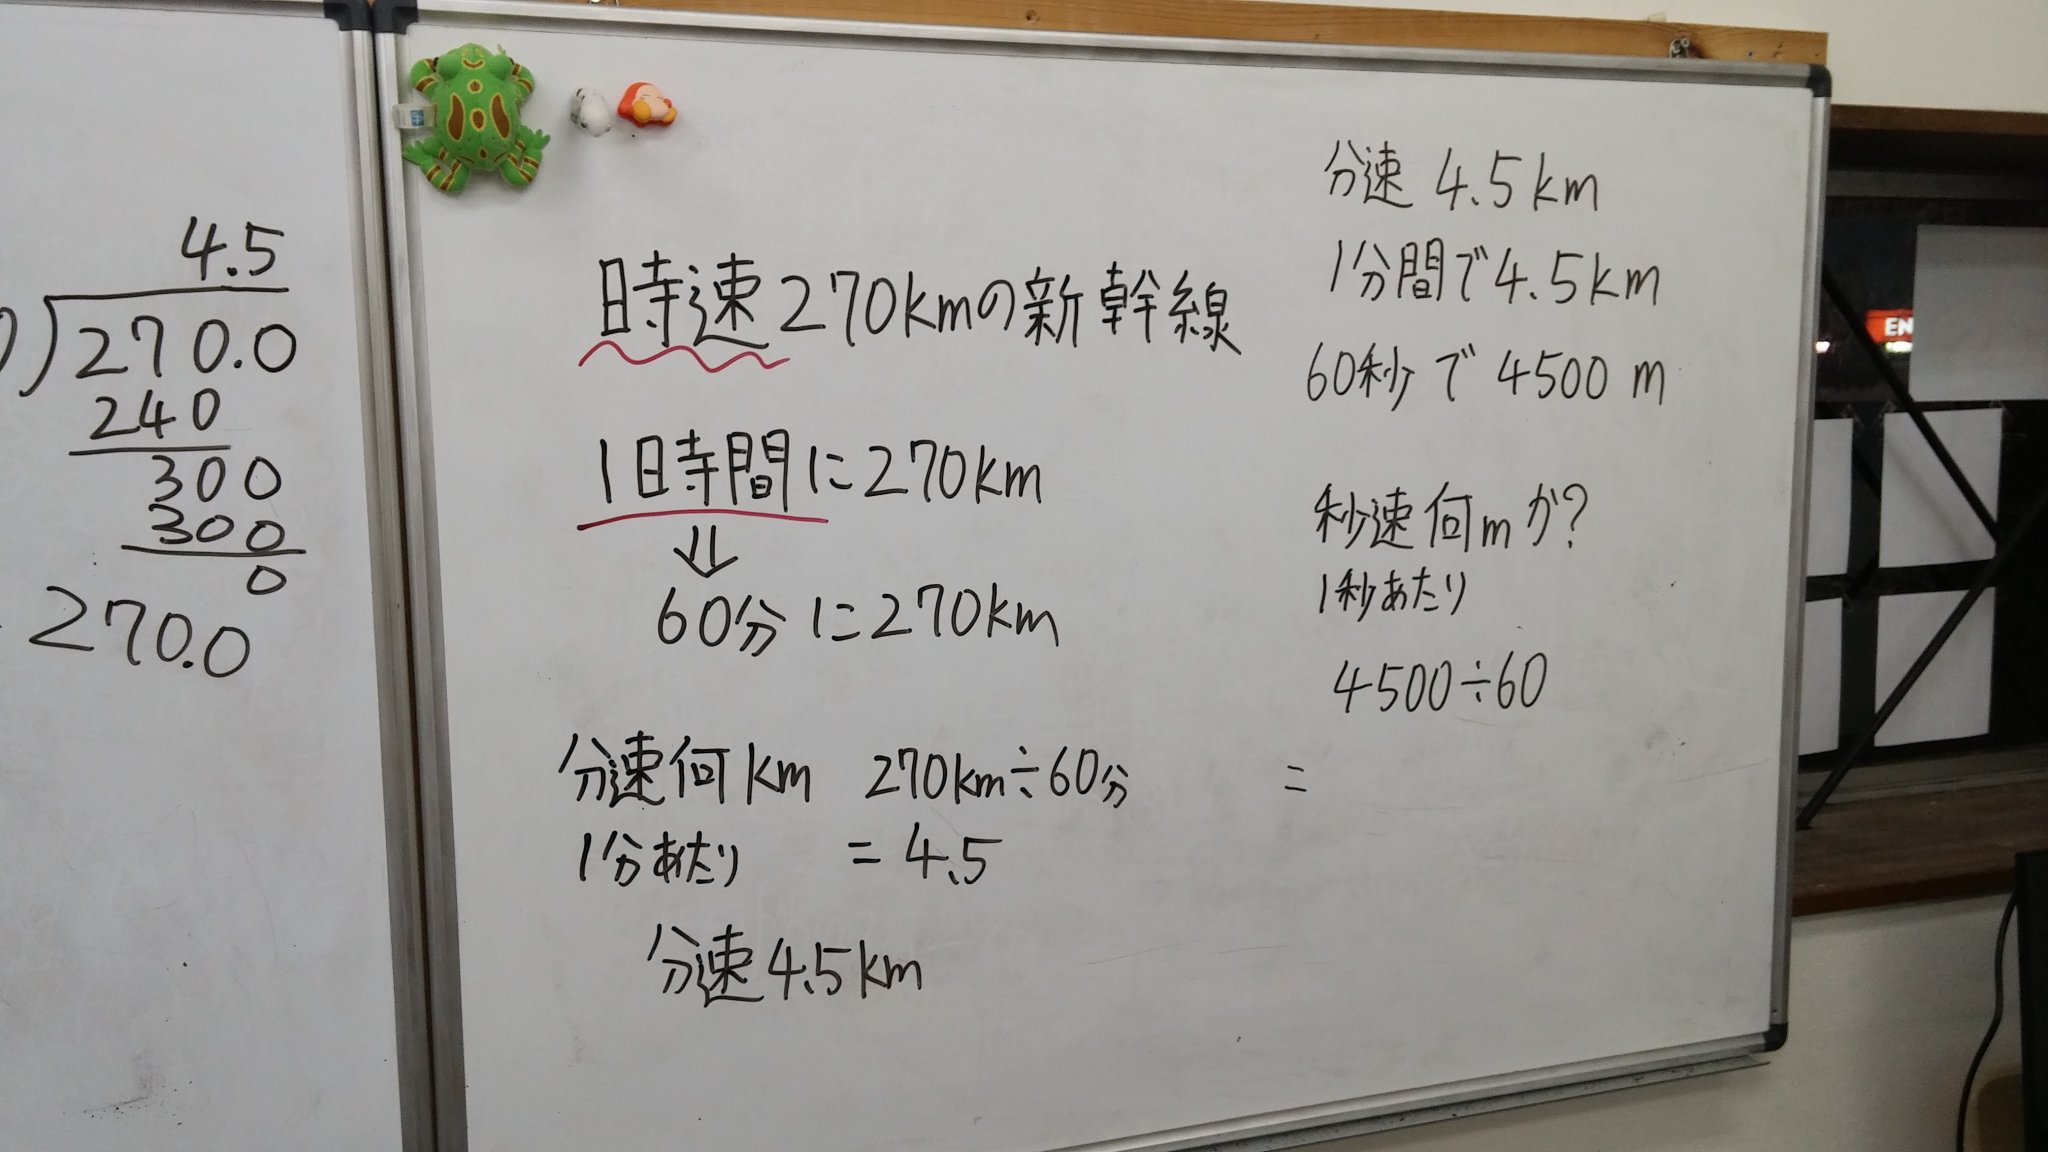 4.5
270.0
240
300
300
0
270.0
時速270kmの新幹線
1時間に270km
60分に270km
分速何km 270km÷60分
1分あたり = 4.5
分速4.5km
分速 4.5km
1分間で4.5km
60秒で4500m
秒速何mか?
1秒あたり
4500÷60
=
EN